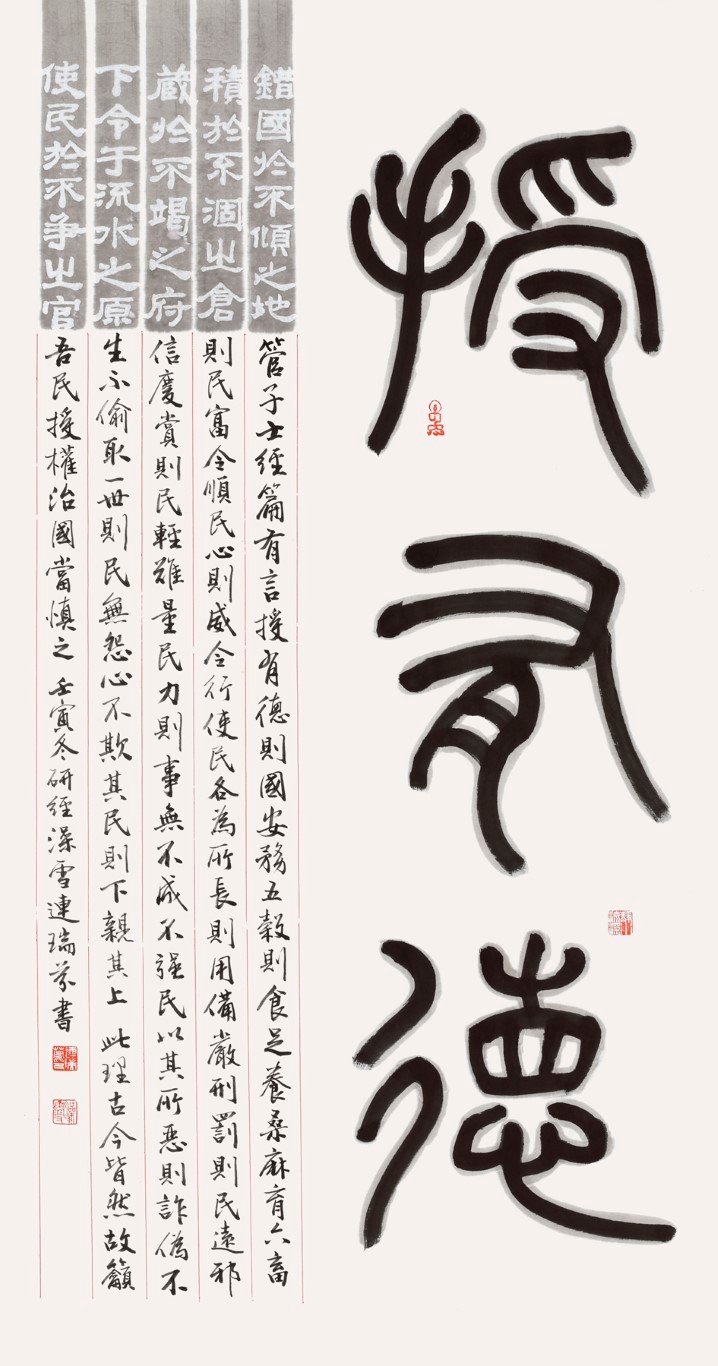 授有德
錯國於不傾之地
積於不涸之倉
藏於不竭之府
下令于流水之原
使民於不争之官
管子士經篇有言授有德則國安務五穀則食足養桑麻育六畜
則民富令順民心則威令行使民各為所長則用備嚴刑罰則民遠邪
信慶賞則民輕難量民力則事無不成不強民以其所惡則詐偽不
生不偷取一世則民無怨心不欺其民則下親其上 此理古今皆然故籲
吾民授權治國當慎之 壬寅冬研經澡雪連瑞芬書